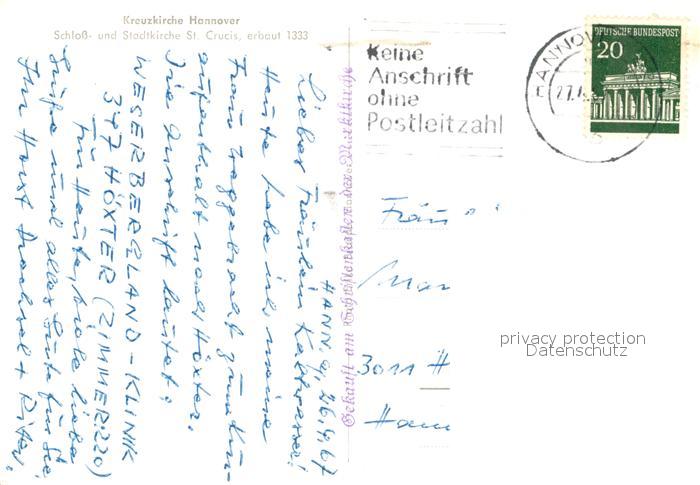 Kreuzkirche Hannover
Schloß- und Stadtkirche St. Crucis, erbaut 1333
HANN., 26.6.67
Liebes Fräulein
Heute habe ich meine
Frau weggebracht zum Kur-
aufenthalt nach Höxter.
Die Anschrift lautet:
WESERBERGLAND-KLINIK
347 HÖXTER (ZIMMER 220)
Für Heute, viele liebe
Grüße und alles Gute für Sie,
Ihr Horst
Gekauft am Schriftenkasten der Marktkirche
Keine
Anschrift
ohne
Postleitzahl
HANNOV
27.6.
DEUTSCHE BUNDESPOST
20
Fräu
Mar
3011 H
Han
privacy protection
Datenschutz